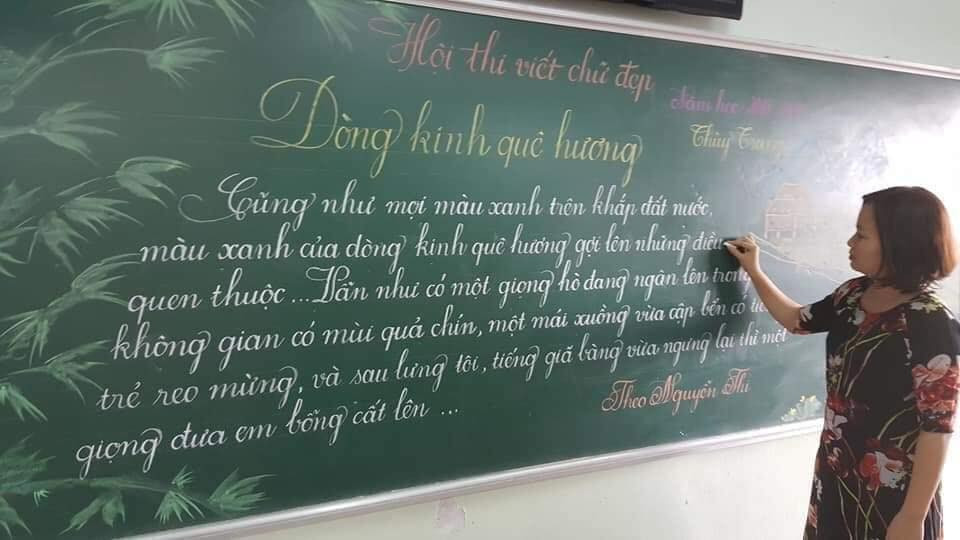 Hội thi viết chữ đẹp
Năm học
Dòng kinh quê hương
Thùy Trang
Cũng như mọi màu xanh trên khắp đất nước,
màu xanh của dòng kinh quê hương gợi lên những điều
quen thuộc... Vẫn như có một giọng hò đang ngân lên trong
không gian có mùi quả chín, một mái xuồng vừa cập bến có
trẻ reo mừng, và sau lưng tôi, tiếng giã bàng vừa ngưng lại thì một
giọng đưa em bỗng cất lên ...
Theo Nguyễn Thi